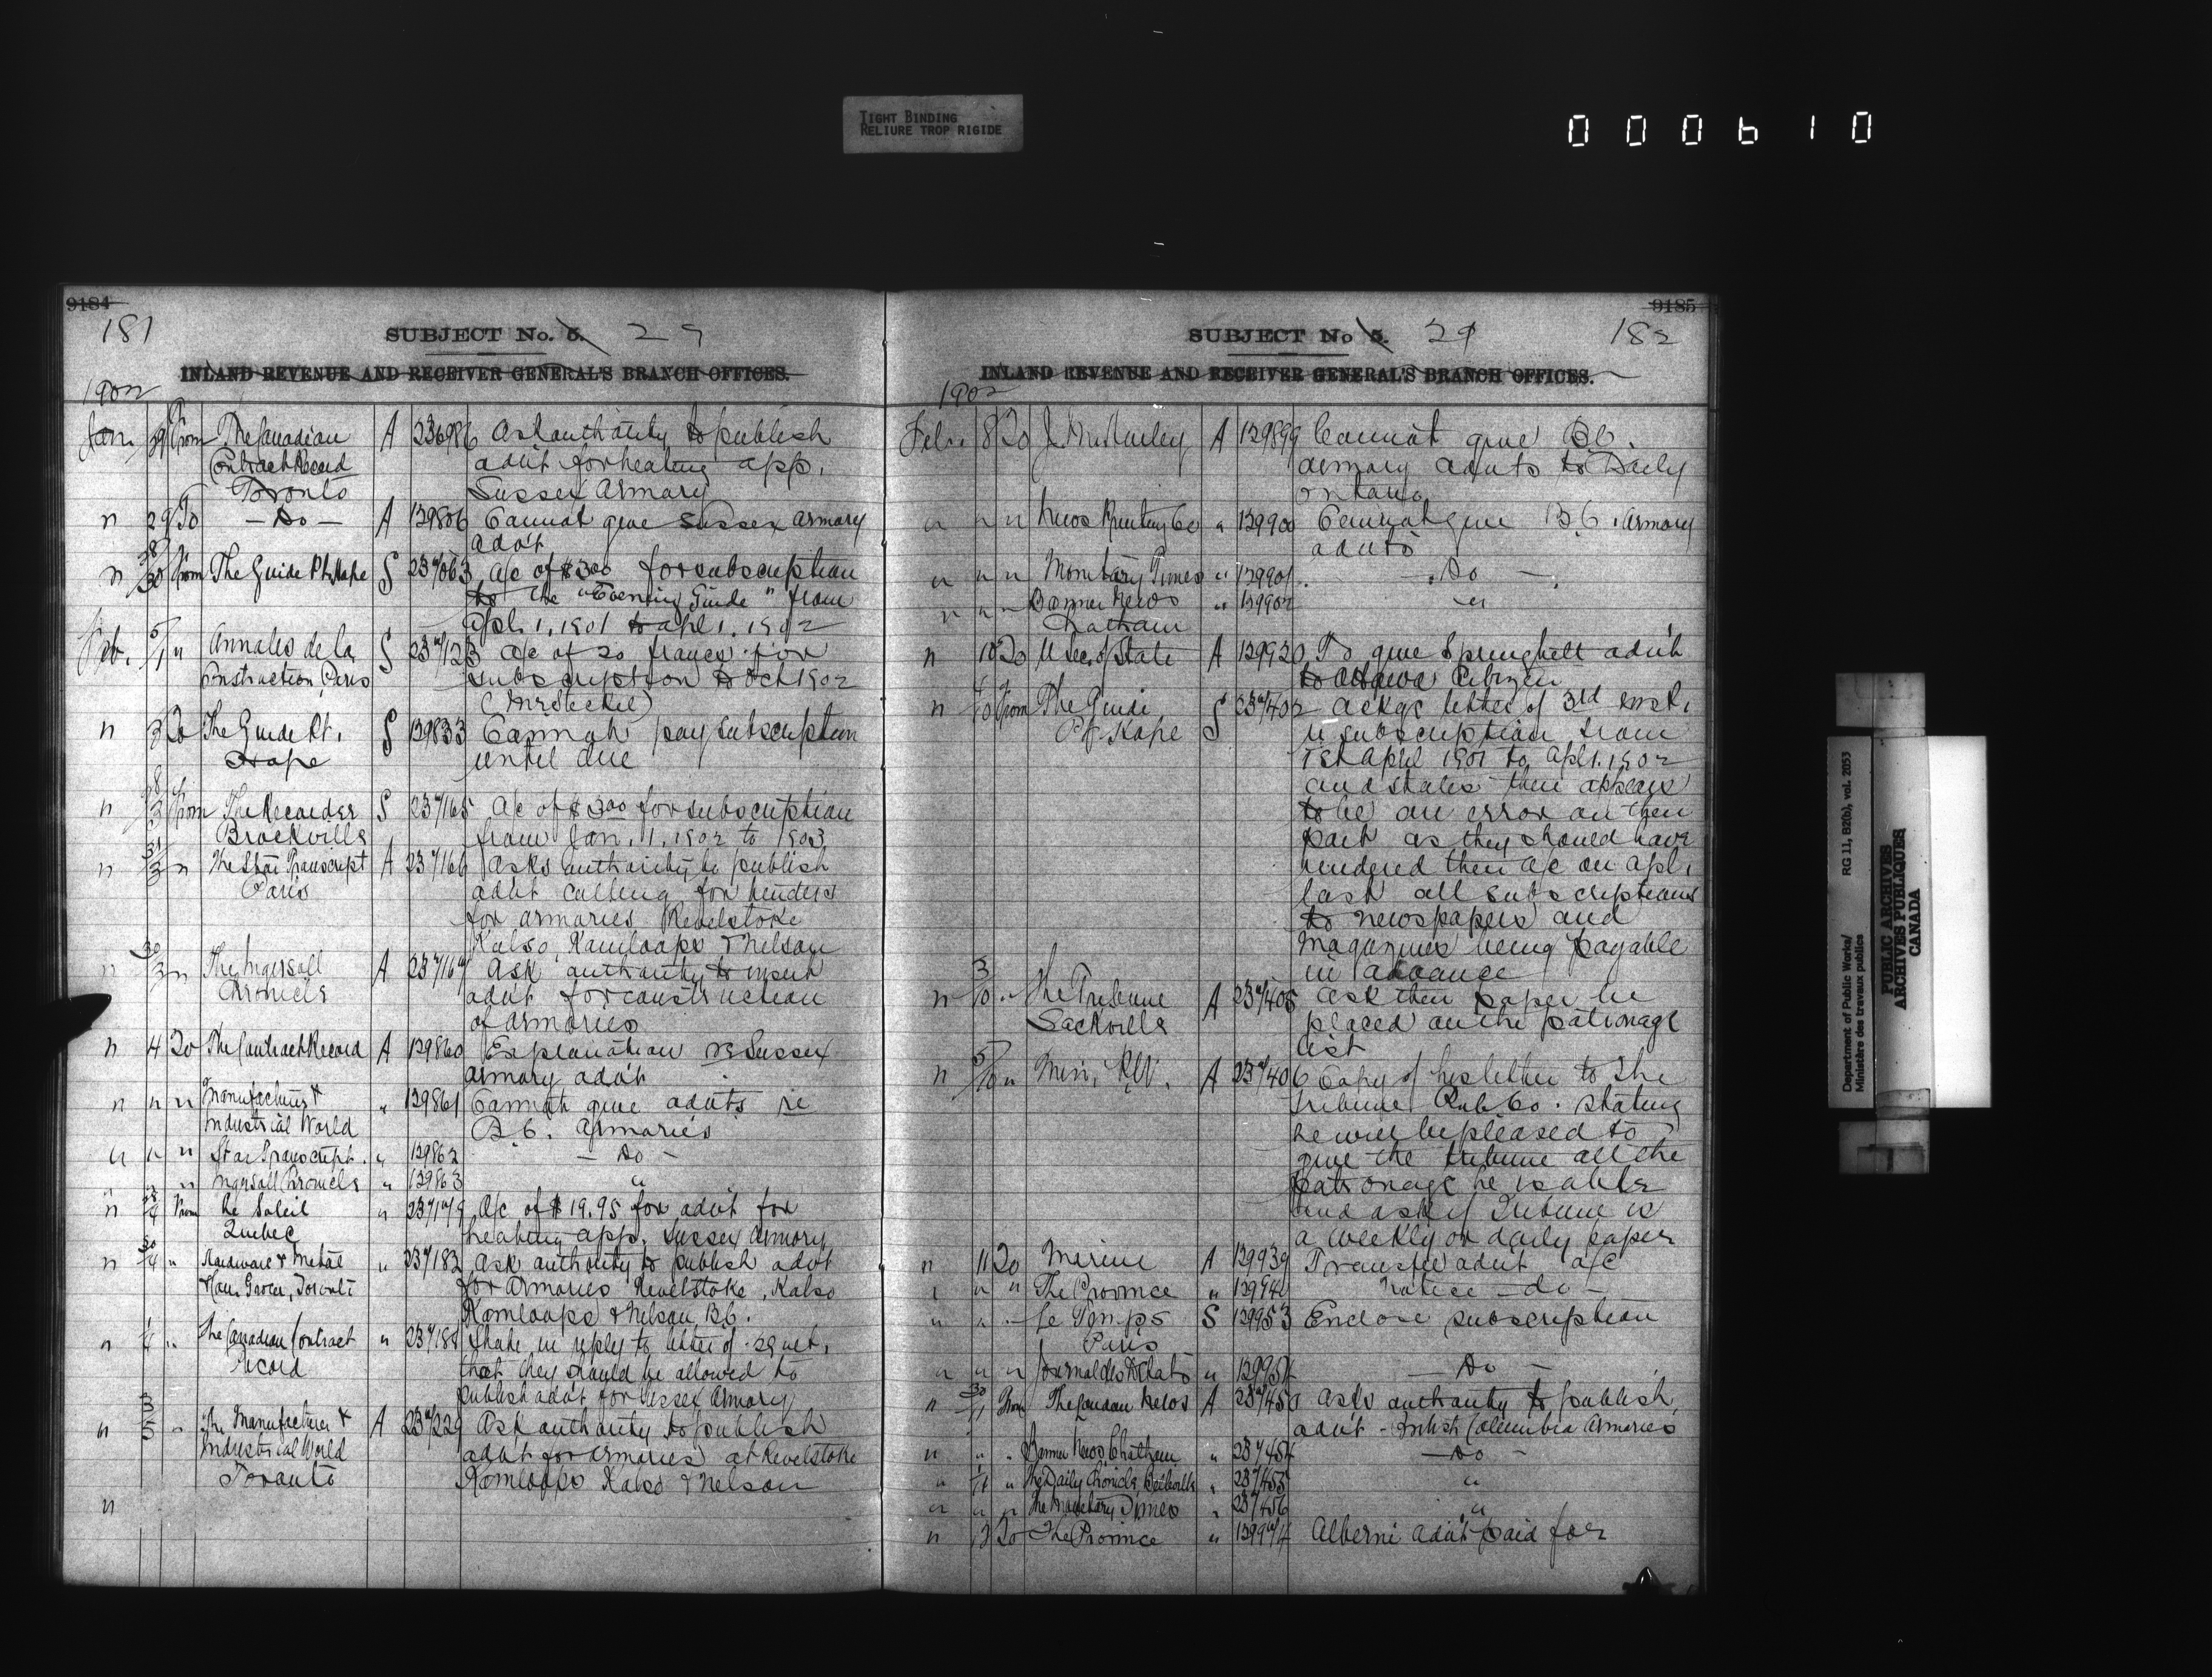 TIGHT BINDING
RELIURE TROP RIGIDE
000610
9184
181
SUBJECT No. 5. 29
INLAND REVENUE AND RECEIVER GENERAL'S BRANCH OFFICES.
1902
Jan. 29 From The Canadian A 236986 Ask authority to publish
Contract Record advt for heating app.
Toronto Sussex Armory
" 29 To - Do - A 139806 Cannot give Sussex Armory
advt
" 28/30 From The Guide Pt Hope S 237063 a/c of $3.00 for subscription
to the "Evening Guide" from
Apl. 1, 1901 to apl 1, 1902
Feb. 5/1 " Annales de la S 237123 a/c of 20 francs for
Construction, Paris subscription to Oct 1902
(Mr Steckel)
" 3 To The Guide Pt. S 139833 Cannot pay subscription
Hope until due
" From The Recorder S 237165 a/c of $3.00 for subscription
Brockville from Jan. 1, 1902 to 1903
" 31/3 " The Star Transcript A 237166 Asks authority to publish
Paris advt calling for tenders
for armories Revelstoke
Kalso, Kamloops & Nelson
" 30/3 " The Ingersoll A 237167 Ask authority to insert
Chronicle advt for construction
of armories
" 4 To The Contract Record A 139860 Explanation re Sussex
armory advt
" " " Manufacturer & " 139861 Cannot give advts re
Industrial World B.C. armories
" " " Star Transcript. " 139862 - Do -
" " " Ingersoll Chronicle " 139863 "
" 28/4 From Le Soleil " 237179 A/c of $19.95 for advt for
Quebec heating app. Sussex Armory
" 30/4 " Hardware & Metal " 237182 Ask authority to publish advt
& Can Grocer, Toronto for Armories Revelstoke, Kalso
Kamloops & Nelson, B.C.
" 1/4 " The Canadian Contract " 237185 State in reply to letter of 29 ult.
Record that they should be allowed to
publish advt for Sussex Armory
" 3/5 " The Manufacturer & A 237229 Ask authority to publish
Industrial World advt for armories at Revelstoke
Toronto Kamloops Kalso & Nelson
"
9185
SUBJECT No 5. 29 182
INLAND REVENUE AND RECEIVER GENERAL'S BRANCH OFFICES.
1902
Feb. 8 To A 139899 Cannot give B.C.
armory advts to Daily
Ontario
" " " News Printing Co " 139900 Cannot give B.C. Armory
advts
" " " Monetary Times " 139901 - Do -
" " " Banner News " 139902 "
Chatham
" 10 To U Sec. of State A 139920 To give Springhill advt
to Ottawa Citizen
" From The Guide S 237402 Ackgs letter of 3rd inst.
Pt Hope re subscription from
1st April 1901 to apl 1. 1902
and states there appears
to be an error on their
part as they should have
rendered their a/c on apl.
last all subscriptions
to newspapers and
magazines being payable
in advance
" 3/10 " The Tribune A 237405 Ask their paper be
Sackville placed on the patronage
list
" 5/10 " Min, R&C. A 237406 Copy of his letter to the
Tribune Pub. Co. stating
he will be pleased to
give the tribune all the
patronage he is able
and ask if Tribune is
a weekly or daily paper
" 11 To Marine A 139939 Transfer advt a/c
" " " The Province " notice - do -
" " " Le Temps S 139953 Enclose subscription
Paris
" " " Journal des Debats " 139954 - Do -
" 30/11 From The London News A 237453 Asks authority to publish
advt - British Columbia Armories
" " " Banner News, Chatham " 237454 - Do -
" " The Daily Chronicle, " 237455 "
" " " The Monetary Times " 237456 "
" To The Province " Alberni advt paid for
Department of Public Works/
Ministère des travaux publics
RG 11, B2(b), vol. 2053
PUBLIC ARCHIVES
ARCHIVES PUBLIQUES
CANADA